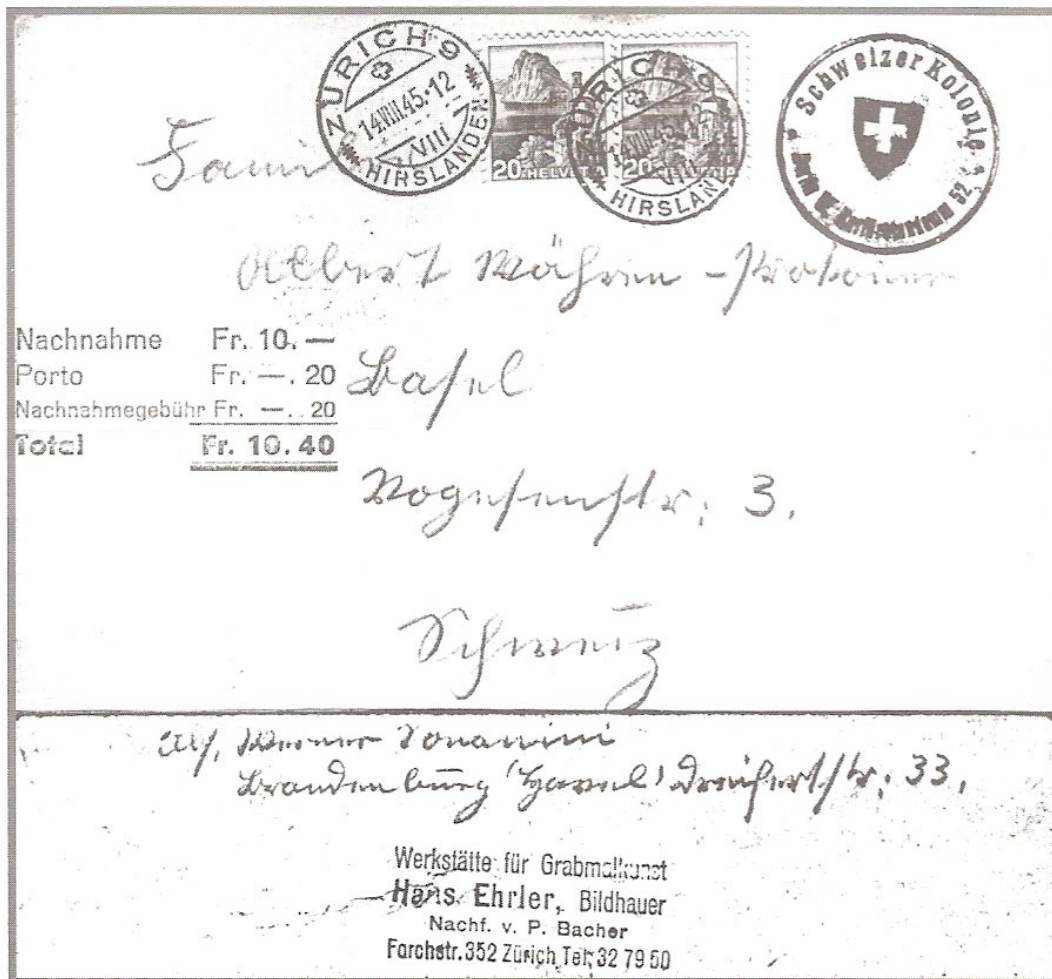 ZÜRICH 9
14.VIII.45.-12
VIII
HIRSLANDEN
20 HELVETIA
20
ZÜRICH 9
14.VIII.45.-12
VIII
HIRSLAN
Schweizer Kolonie
52
Fami
Albert Währen -
Nachnahme Fr. 10.—
Porto Fr. —. 20
Basel
Nachnahmegebühr Fr. —. 20
Total Fr. 10.40
Vogesenstr. 3.
Schweiz
Abs. Werner
Brandenburg (Havel) 33.
Werkstätte für Grabmalkunst
Hans Ehrler, Bildhauer
Nachf. v. P. Bacher
Forchstr. 352 Zürich Tel. 32 79 50